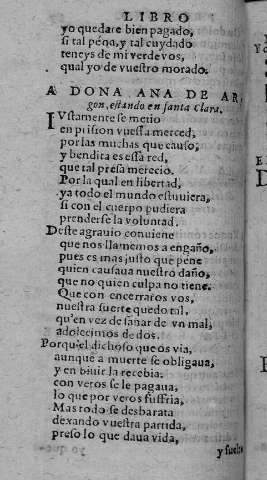 LIBRO
yo quedare bien pagado,
si tal pena, y tal cuydado
teneys de mi verde vos,
qual yo de vuestro morado.
A DONA ANA DE AR
gon, estando en santa Clara.
IVstamente se metio
en prision vuessa merced,
por las muchas que causo,
y bendita es essa red,
que tal presa merecio.
Por la qual en libertad,
ya todo el mundo estuuiera,
si con el cuerpo pudiera
prenderse la voluntad.
Deste agrauio conuiene
que nos llamemos a engaño,
pues es mas justo que pene
quien causaua nuestro daño,
que no quien culpa no tiene.
Que con encerraros vos,
nuestra suerte quedo tal,
qu'en vez de sanar de vn mal,
adolecimos de dos.
Porqu'el dichoso que os via,
aunque a muerte se obligaua,
y en biuir la recebia.
con veros se le pagaua,
lo que por veros suffria,
Mas todo se desbarata
dexando vuestra partida,
preso lo que daua vida,
y suelto